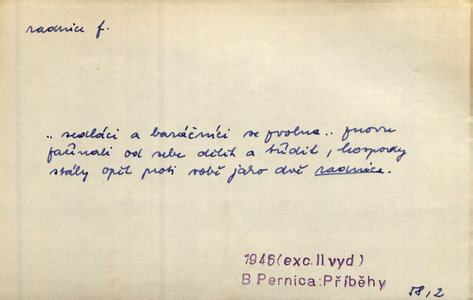 radnice f.
.. sedláci a baráčníci se zvolna .. znovu
začínali od sebe dělit a třídit, hospody
stály opět proti sobě jako dvě radnice.
1946 (exc. II vyd.)
B Pernica: Příběhy
58,2